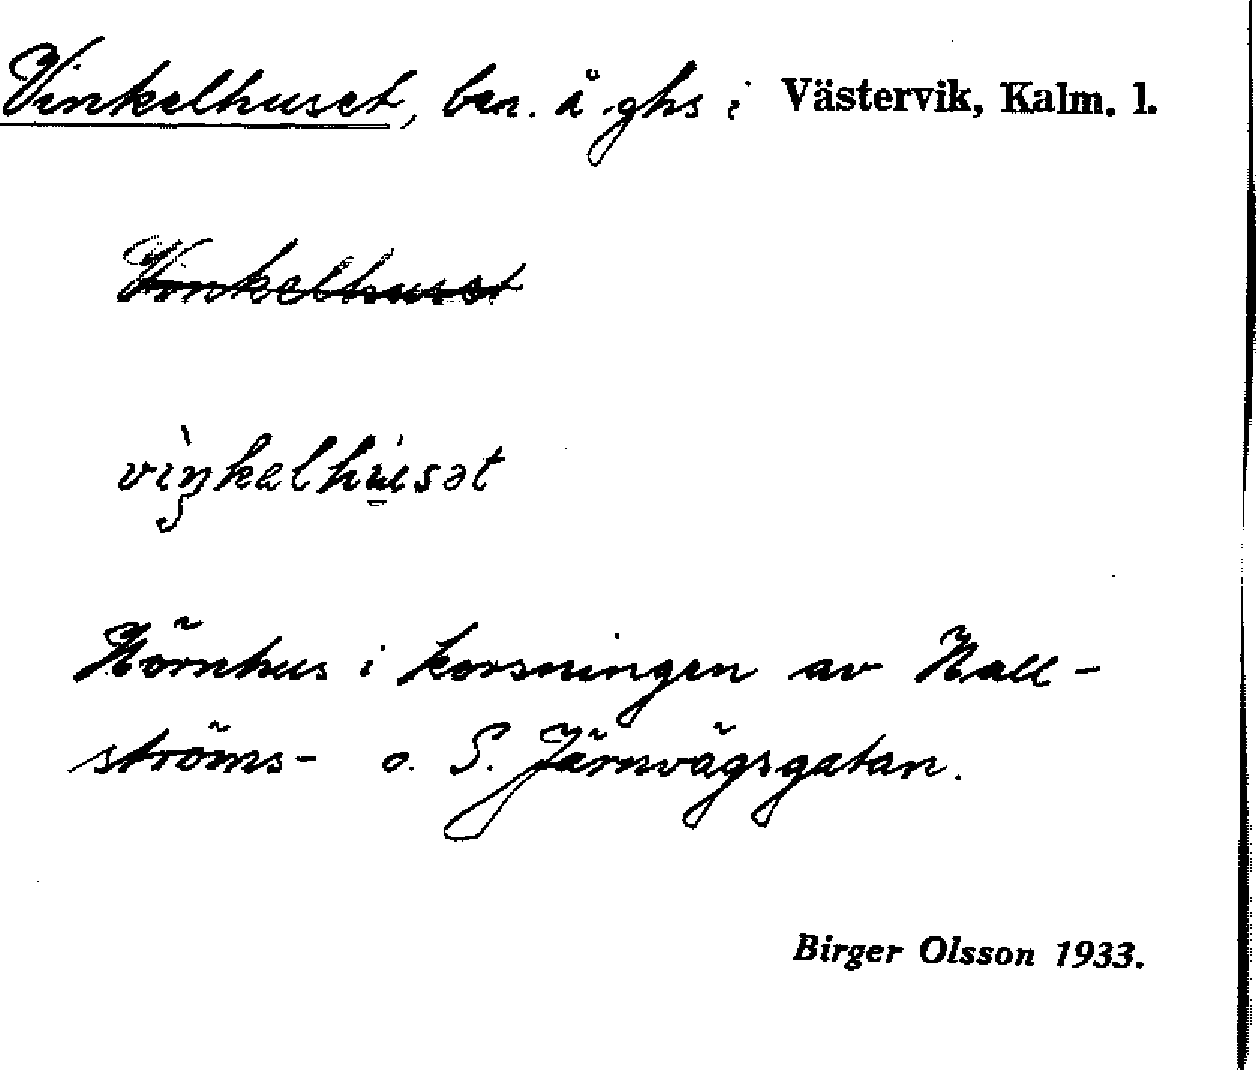 Vinkelhuset, ben. å ghs i Västervik, Kalm. l.
Vinkelhuset
vìŋkelhu̲sət
Hörnhus i korsningen av Hall-
ströms- o. S. Järnvägsgatan.
Birger Olsson 1933.